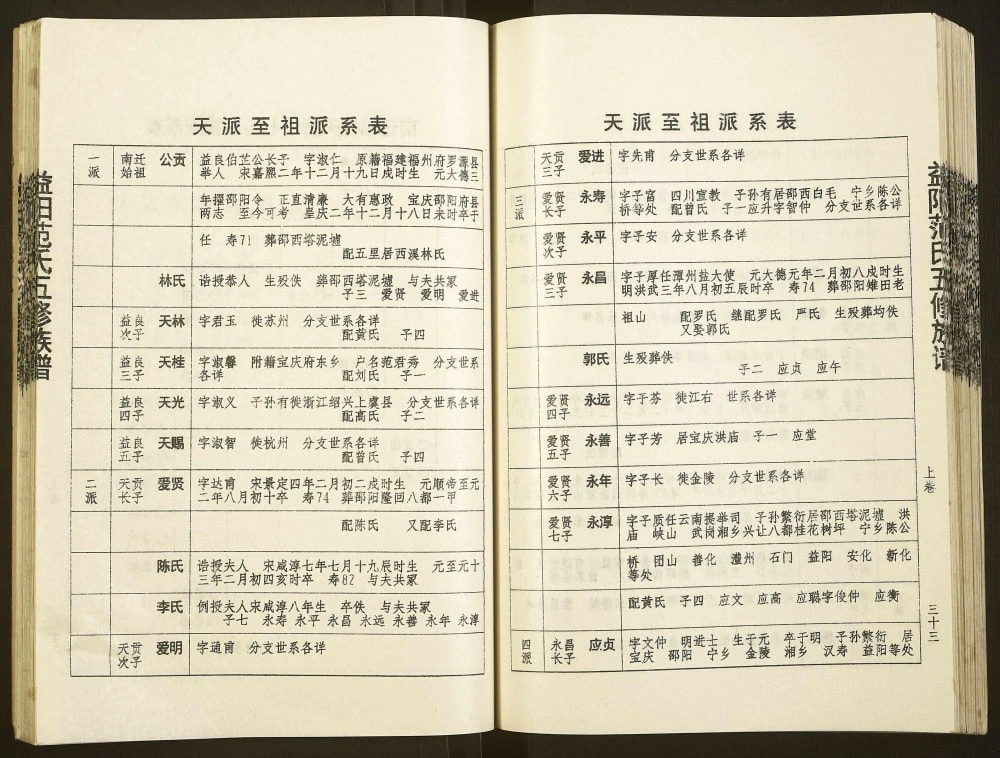 益阳范氏五修族谱
天派至祖派系表
一派
南迁始祖
公贡
益良伯芷公长子 字淑仁 原籍福建福州府罗源县
举人 宋嘉熙二年十二月十九日戌时生 元大德三
年擢邵阳令 正直清廉 大有惠政 宝庆邵阳府县
两志 至今可考 皇庆二年十二月十八日未时卒于
任 寿71 葬邵西塔泥墟
配五里居西溪林氏
林氏
诰授恭人 生殁佚 葬邵西塔泥墟 与夫共冢
子三 爱贤 爱明 爱进
益良次子
天林
字君玉 徙苏州 分支世系各详
配黄氏 子四
益良三子
天桂
字淑馨 附籍宝庆府东乡 户名范君秀 分支世系
各详 配刘氏 子一
益良四子
天光
字淑义 子孙有徙浙江绍兴上虞县 分支世系各详
配高氏 子二
益良五子
天赐
字淑智 徙杭州 分支世系各详
配曾氏 子四
二派
天贡长子
爱贤
字达甫 宋景定四年二月初二戌时生 元顺帝至元
二年八月初十卒 寿74 葬邵阳隆回八都一甲
配陈氏 又配李氏
陈氏
诰授夫人 宋咸淳七年七月十九辰时生 元至元十
三年二月初四亥时卒 寿82 与夫共冢
李氏
例授夫人宋咸淳八年生 卒佚 与夫共冢
子七 永寿 永平 永昌 永远 永善 永年 永淳
天贡次子
爱明
字通甫 分支世系各详
天派至祖派系表
天贡三子
爱进
字先甫 分支世系各详
三派
爱贤长子
永寿
字子富 四川宣教 子孙有居邵西白毛 宁乡陈公
桥等处 配曾氏 子一应升字智仲 分支世系各详
爱贤次子
永平
字子安 分支世系各详
爱贤三子
永昌
字子厚任潭州益大使 元大德元年二月初八戌时生
明洪武三年八月初五辰时卒 寿74 葬邵阳雉田老
祖山 配罗氏 继配罗氏 严氏 生殁葬均佚
又娶郭氏
郭氏
生殁葬佚
子二 应贞 应午
爱贤四子
永远
字子芬 徙江右 世系各详
爱贤五子
永善
字子芳 居宝庆洪庙 子一 应堂
爱贤六子
永年
字子长 徙金陵 分支世系各详
爱贤七子
永淳
字子质任云南提举司 子孙繁衍居邵西塔泥墟 洪
庙 峡山 武岗湘乡兴让八都桂花树坪 宁乡陈公
桥 团山 善化 澧州 石门 益阳 安化 新化
等处
配黄氏 子四 应文 应高 应聪字俊仲 应衡
四派
永昌长子
应贞
字文仲 明进士 生于元 卒于明 子孙繁衍 居
宝庆 邵阳 宁乡 金陵 湘乡 汉寿 益阳等处
益阳范氏五修族谱
上卷
三十三